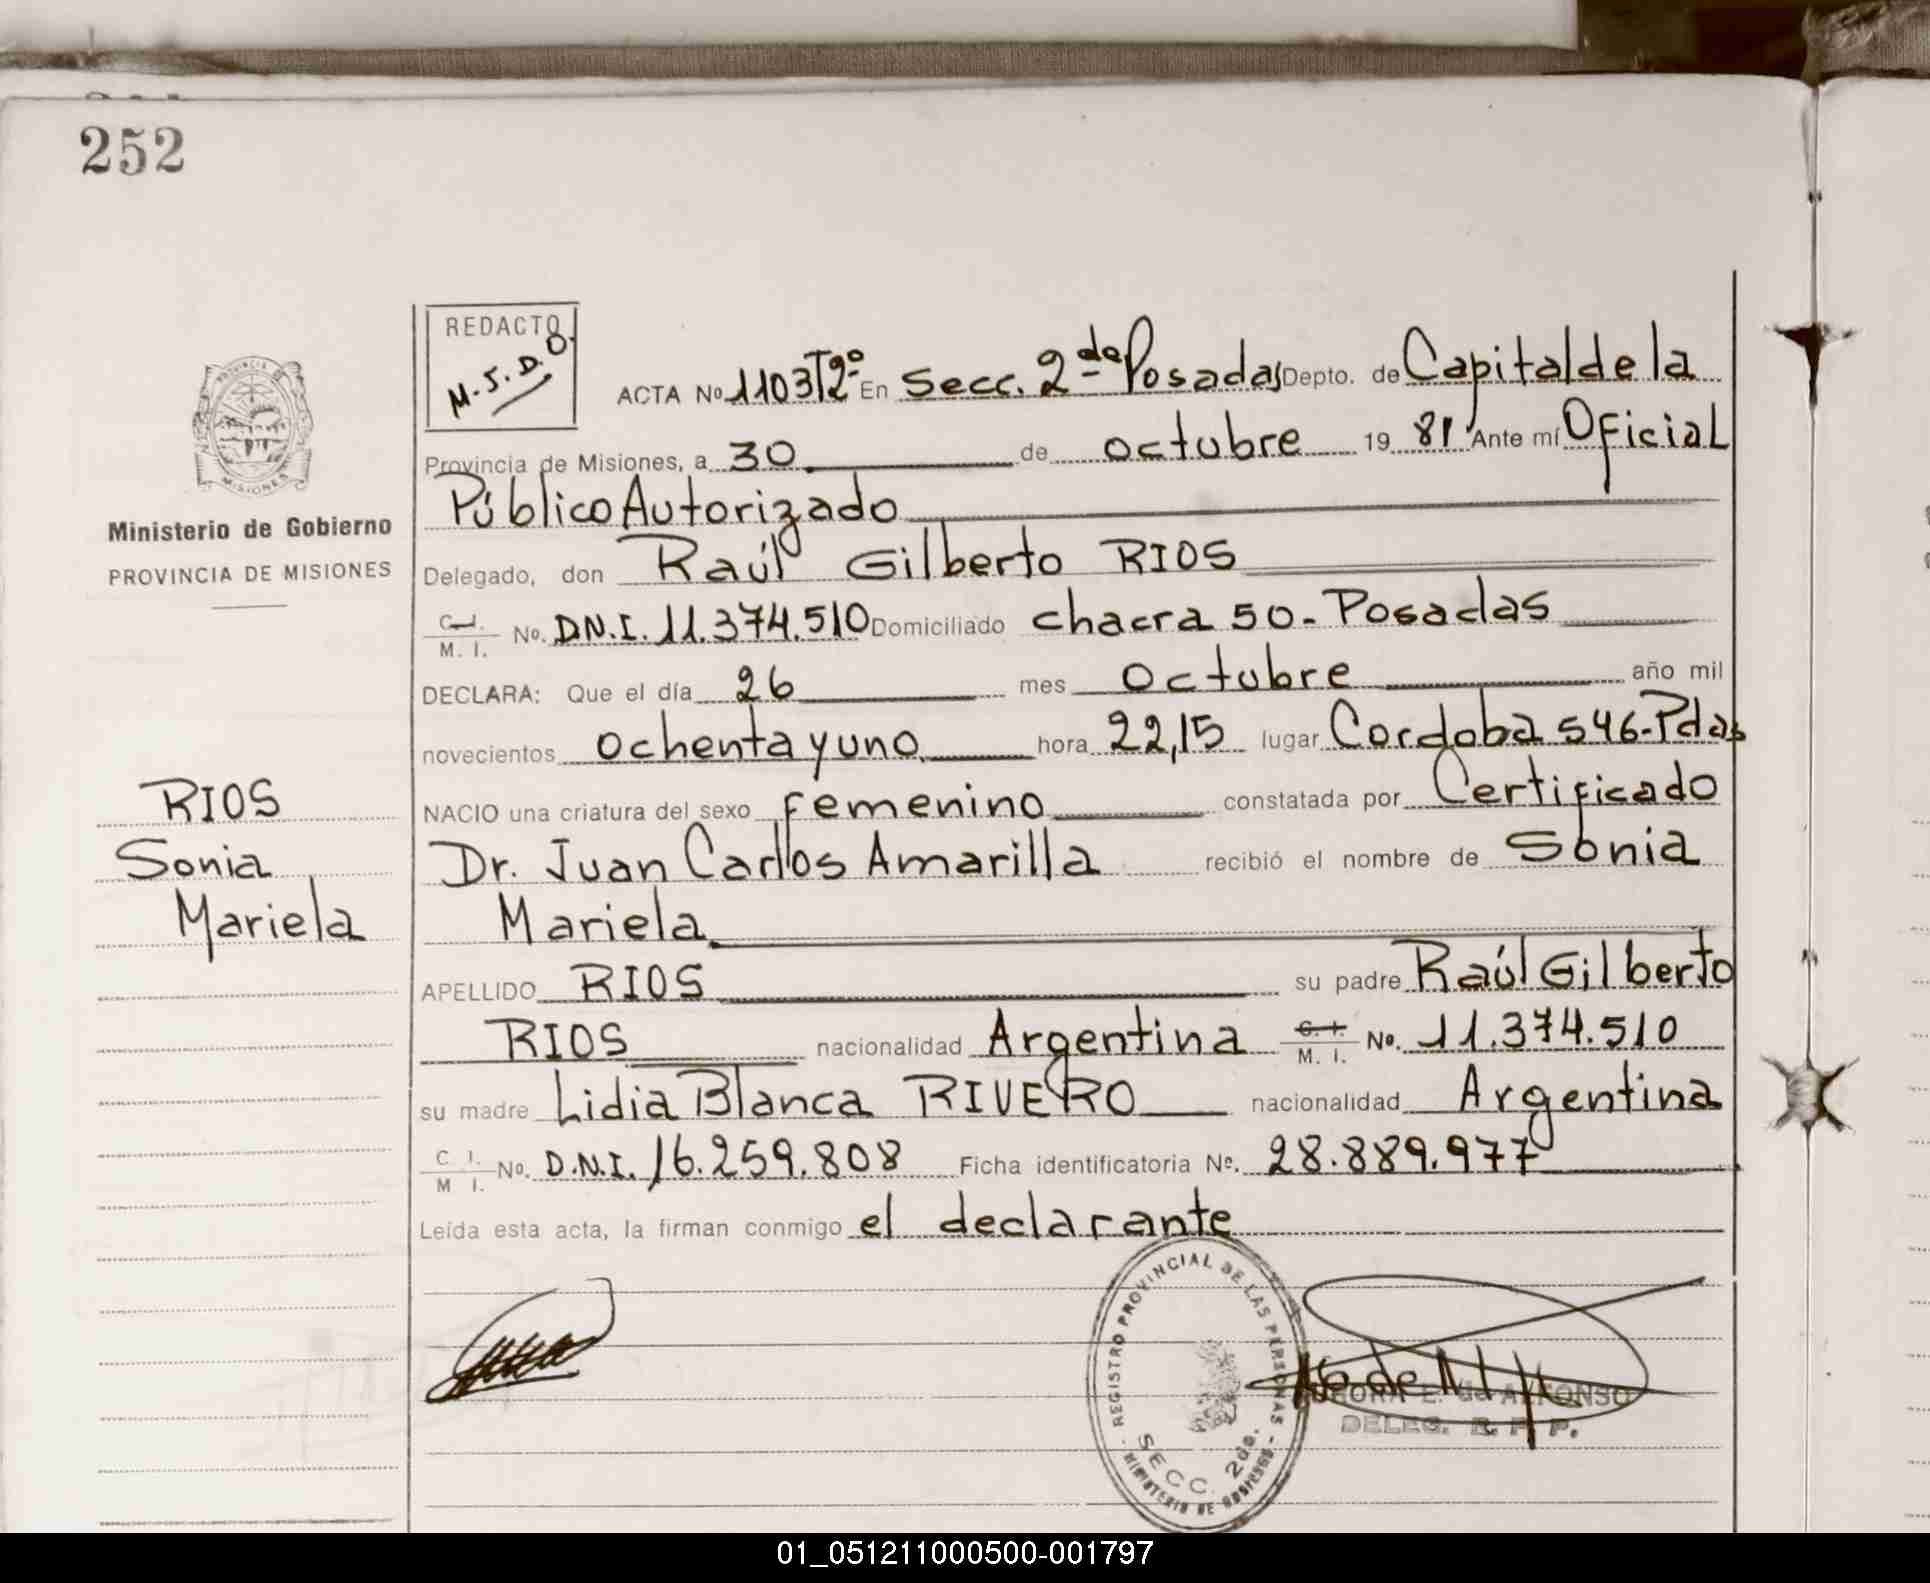 252
REDACTO
M.S.D.O.
ACTA No 1103 Tº2 En Secc. 2da Posadas Depto. de Capital de la
Provincia de Misiones, a 30 de octubre 19 81 Ante mí Oficial
Público Autorizado
Delegado, don Raúl Gilberto RIOS
C.I. M. I. No. D.N.I. 11.374.510 Domiciliado chacra 50.- Posadas
DECLARA: Que el día 26 mes octubre año mil
novecientos ochenta y uno hora 22,15 lugar Cordoba 546-Pdas
NACIO una criatura del sexo femenino constatada por Certificado
Dr. Juan Carlos Amarilla recibió el nombre de Sonia
Mariela
APELLIDO RIOS su padre Raúl Gilberto
RIOS nacionalidad Argentina C. I. M. I. No. 11.374.510
su madre Lidia Blanca RIVERO nacionalidad Argentina
C I. M I. No. D.N.I. 16.259.808 Ficha identificatoria No. 28.889.977
Leída esta acta, la firman conmigo el declarante
PROVINCIA DE
MISIONES
Ministerio de Gobierno
PROVINCIA DE MISIONES
RIOS
Sonia
Mariela
REGISTRO PROVINCIAL DE LAS PERSONAS
SECC. 2da.
MINISTERIO DE GOBIERNO
E. de ALFONSO
DELEG. R. P. P.
01_051211000500-001797